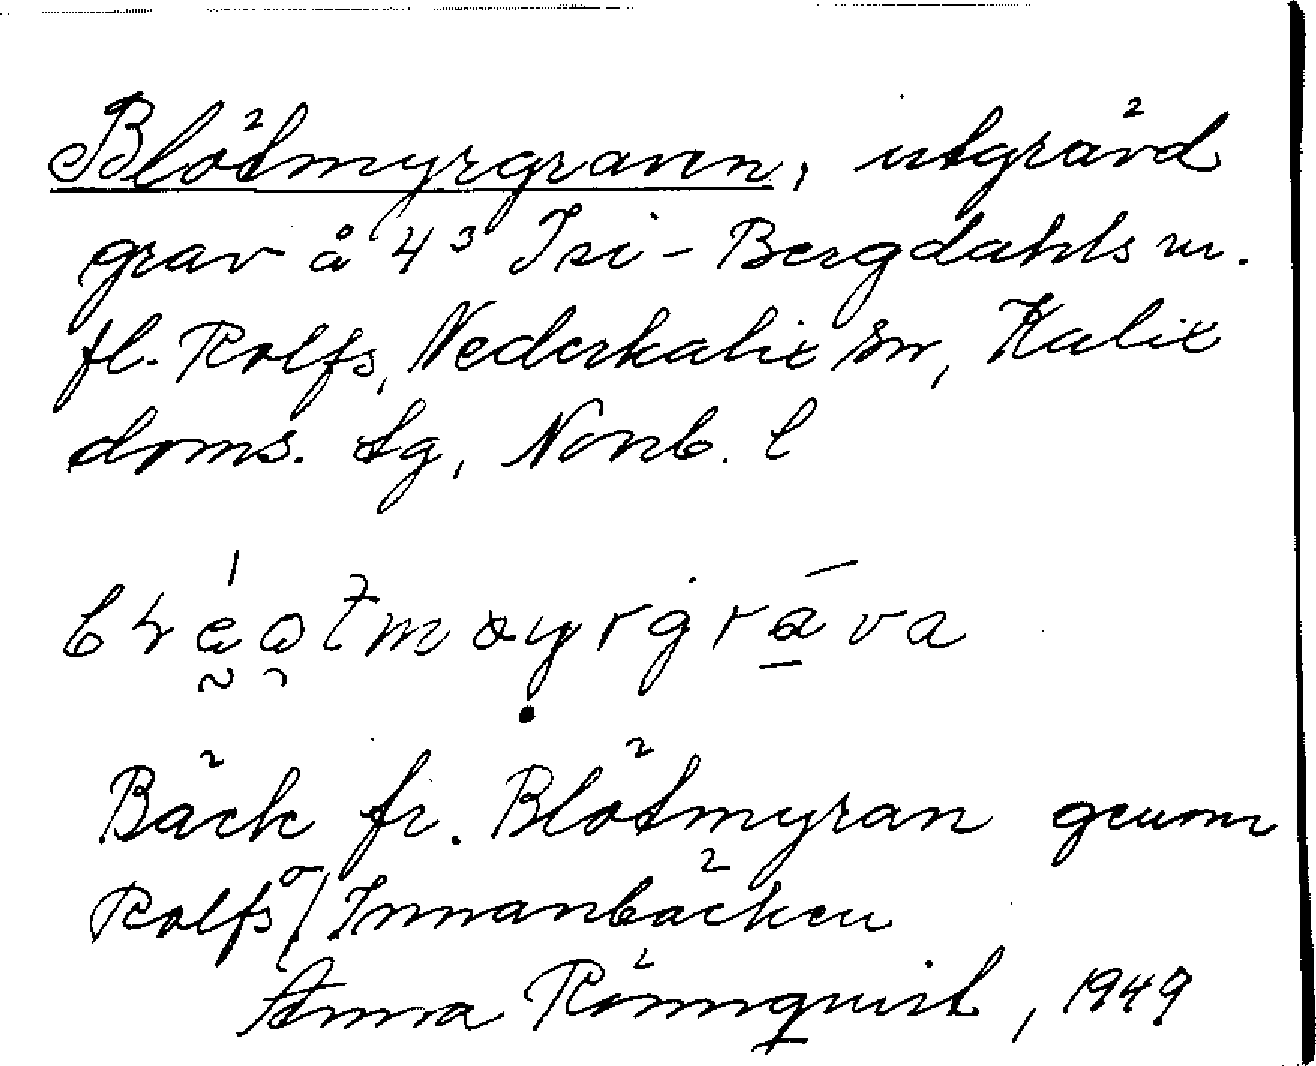 Blötmyrgraven, utgrävd
grav å 4³ Isi-Bergdahls m.
fl. Rolfs, Nederkalix sn, Kalix
doms. lg, Norrb. l
Bäck fr. Blötmyran genom
Rolfså/Innanbäcken
Anna Rönnqvist, 1949